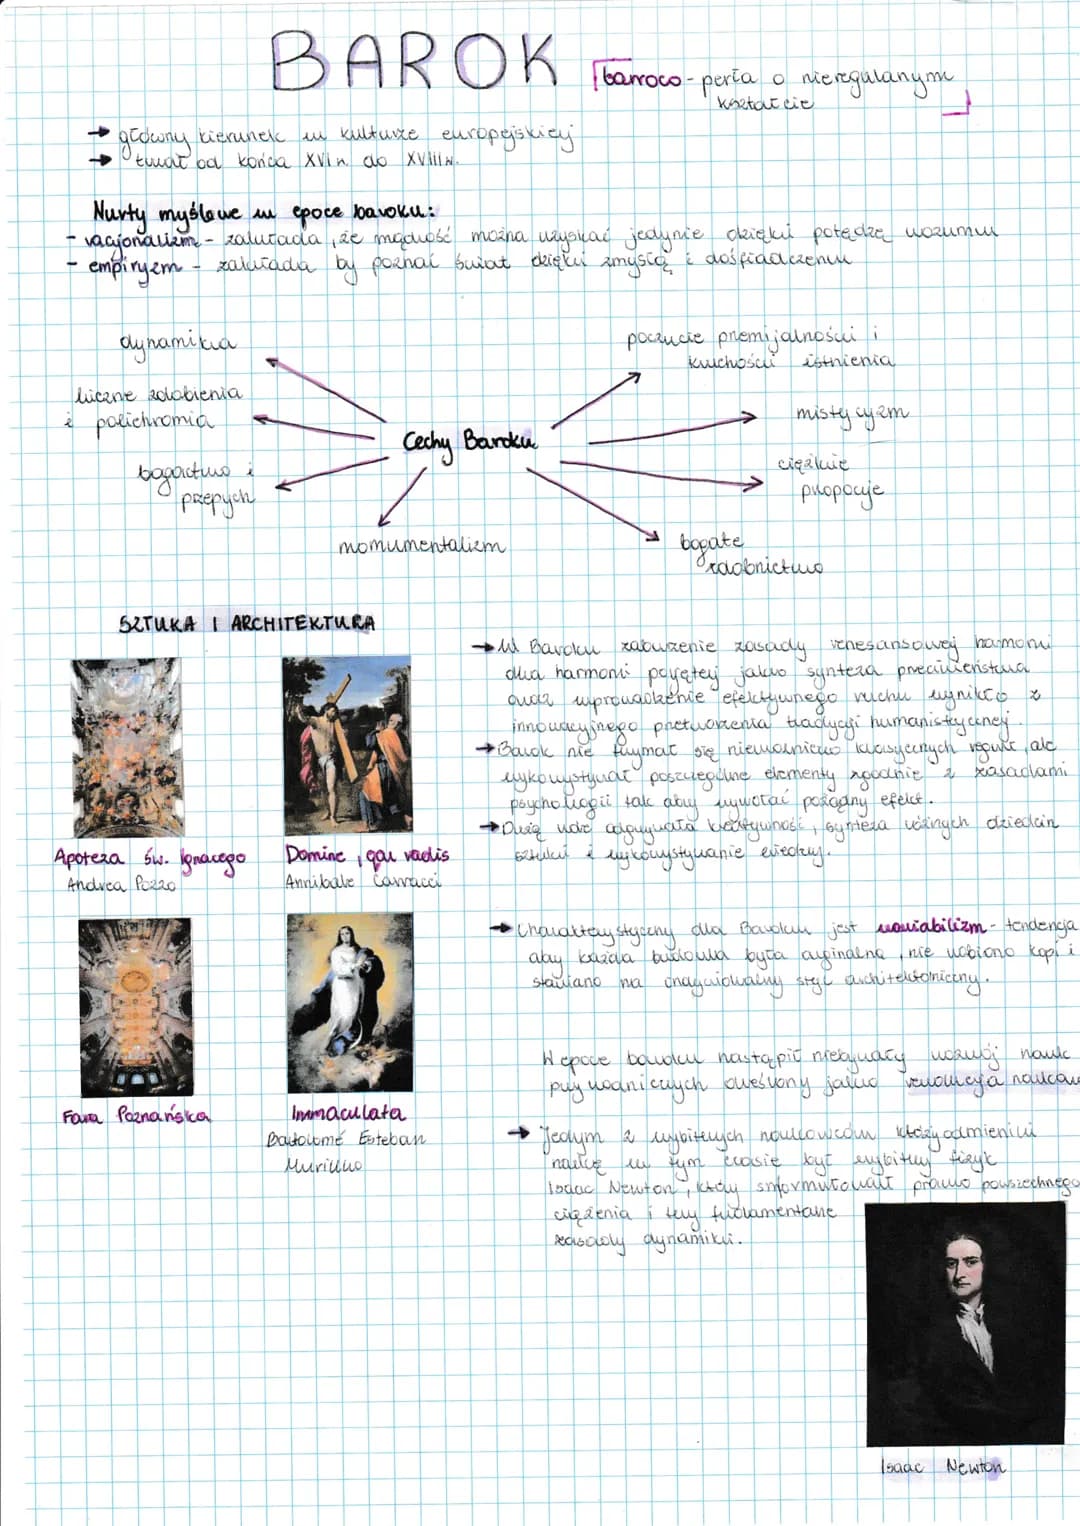 BAROK
barroco - perła o nieregularnym
kształcie
→ główny kierunek w kulturze europejskiej
→ trwał od końca XVI w. do XVIII w.
Nurty myślowe w epoce baroku:
- racjonalizm - zakłada, że mądrość można uzyskać jedynie dzięki potędze rozumu
- empiryzm - zakłada by poznać świat dzięki zmysłą i doświadczeniu
dynamika
liczne zdobienia
i polichromia
bogactwo i
przepych
monumentalizm
Cechy Baroku
poczucie przemijalności i
kruchości istnienia
mistycyzm
ciężkie
propocje
bogate
zdobnictwo
SZTUKA I ARCHITEKTURA
→ W Baroku zaburzenie zasady renesansowej harmoni
dla harmoni pojętej jako synteza przeciwieństwa
oraz wprowadzenie efektywnego ruchu wynikło z
innowacyjnego przetworzenia tradycji humanistycznej.
→ Barok nie trzymał się niewolniczo klasycznych reguł, ale
wykorzystywał poszczególne elementy zgodnie z zasadami
psychologii tak aby wywołać pożądny efekt.
→ Dużą rolę odgrywała kreatywność, synteza różnych dziedzin
sztuki i wykorzystywanie wiedzy.
Apoteza św. Ignacego
Andrea Pozzo
Domine, quo vadis
Annibale Carracci
→ Charakterystyczny dla Baroku jest wariabilizm - tendencja
aby każda budowla była orginalna, nie robiono kopi i
stawiano na indywidualny styl architektoniczny.
Fara Poznańska
Immaculata
Bartolomé Esteban
Murillo
W epoce baroku nastąpił niebywały rozwój nauk
przyrodniczych określony jako rewolucja naukowa
→ Jednym z wybitnych naukowców którzy odmienili
naukę w tym czasie był wybitny fizyk
Isaac Newton, który sformułował prawo powszechnego
ciążenia i trzy fudamentalne
zasady dynamiki.
Isaac Newton